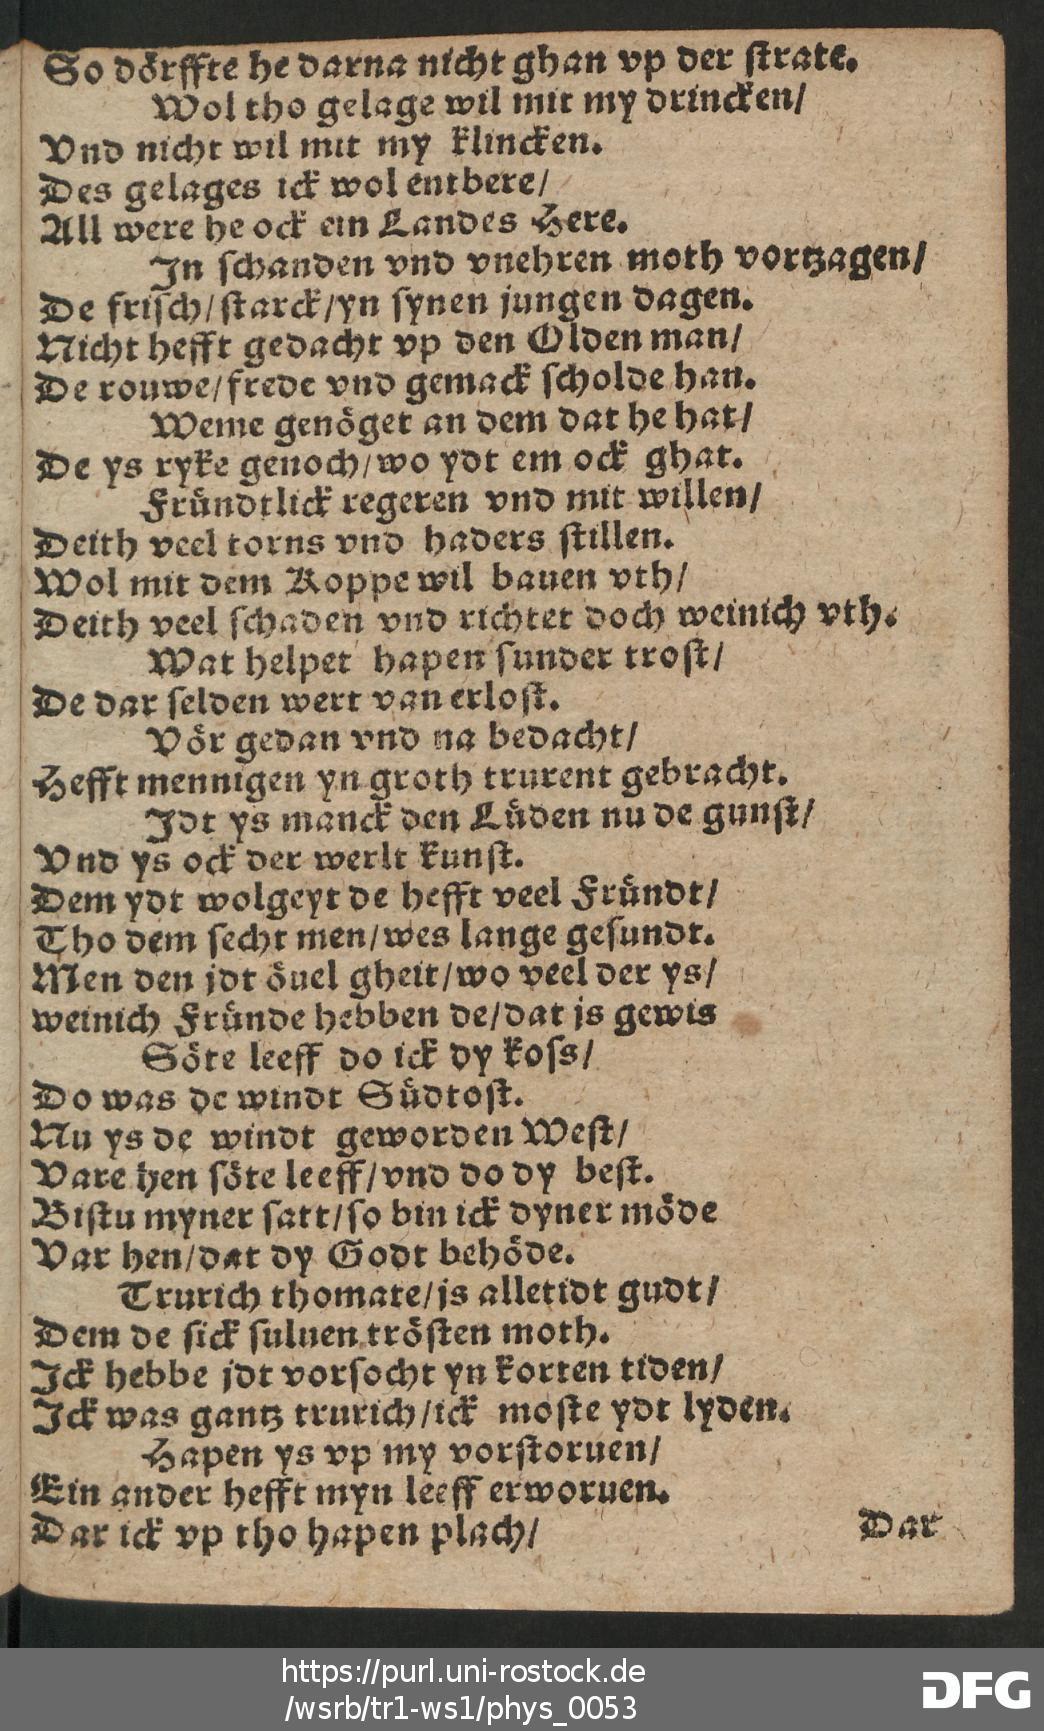 So dörffte he darna nicht ghan vp der strate.
Wol tho gelage wil mit my drincken/
Vnd nicht wil mit my klincken.
Des gelages ick wol entbere/
All were he ock ein Landes Here.
In schanden vnd vnehren moth vortzagen/
De frisch/starck/yn synen jungen dagen.
Nicht hefft gedacht vp den Olden man/
De rouwe/frede vnd gemack scholde han.
Weme genöget an dem dat he hat/
De ys ryke genoch/wo ydt em ock ghat.
Fründtlick regeren vnd mit willen/
Deith veel torns vnd haders stillen.
Wol mit dem Koppe wil bauen vth/
Deith veel schaden vnd richtet doch weinich vth.
Wat helpet hapen sunder trost/
De dar selden wert van erlost.
Vör gedan vnd na bedacht/
Hefft mennigen yn groth trurent gebracht.
Idt ys manck den Lüden nu de gunst/
Vnd ys ock der werlt kunst.
Dem ydt wolgeyt de hefft veel Fründt/
Tho dem secht men/wes lange gesundt.
Men den jdt öuel gheit/wo veel der ys/
weinich Fründe hebben de/dat js gewis
Söte leeff do ick dy koss/
Do was de windt Südtost.
Nu ys de windt geworden West/
Vare hen söte leeff/vnd do dy best.
Bistu myner satt/so bin ick dyner möde
Var hen/dat dy Godt behöde.
Trurich thomate/js alletidt gudt/
Dem de sick suluen trösten moth.
Ick hebbe jdt vorsocht yn korten tiden/
Ick was gantz trurich/ick moste ydt lyden.
Hapen ys vp my vorstoruen/
Ein ander hefft myn leeff erworuen.
Dar ick vp tho hapen plach/
Dar
https://purl.uni-rostock.de
/wsrb/tr1-ws1/phys_0053
DFG